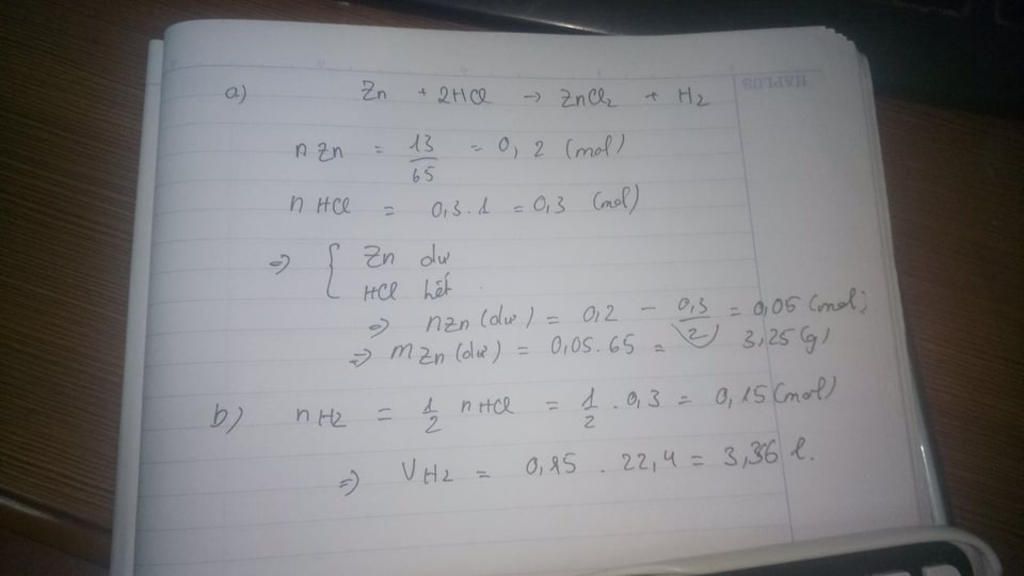 HAPLUS
a) Zn + 2HCl → ZnCl₂ + H₂
n Zn = 13/65 = 0,2 (mol)
n HCl = 0,3.1 = 0,3 (mol)
⇒ { Zn dư
HCl hết
⇒ nZn (dư) = 0,2 - 0,3/2 = 0,05 (mol)
⇒ mZn (dư) = 0,05.65 = 3,25 (g)
b) nH₂ = 1/2 nHCl = 1/2 . 0,3 = 0,15 (mol)
⇒ VH₂ = 0,15 . 22,4 = 3,36 l.